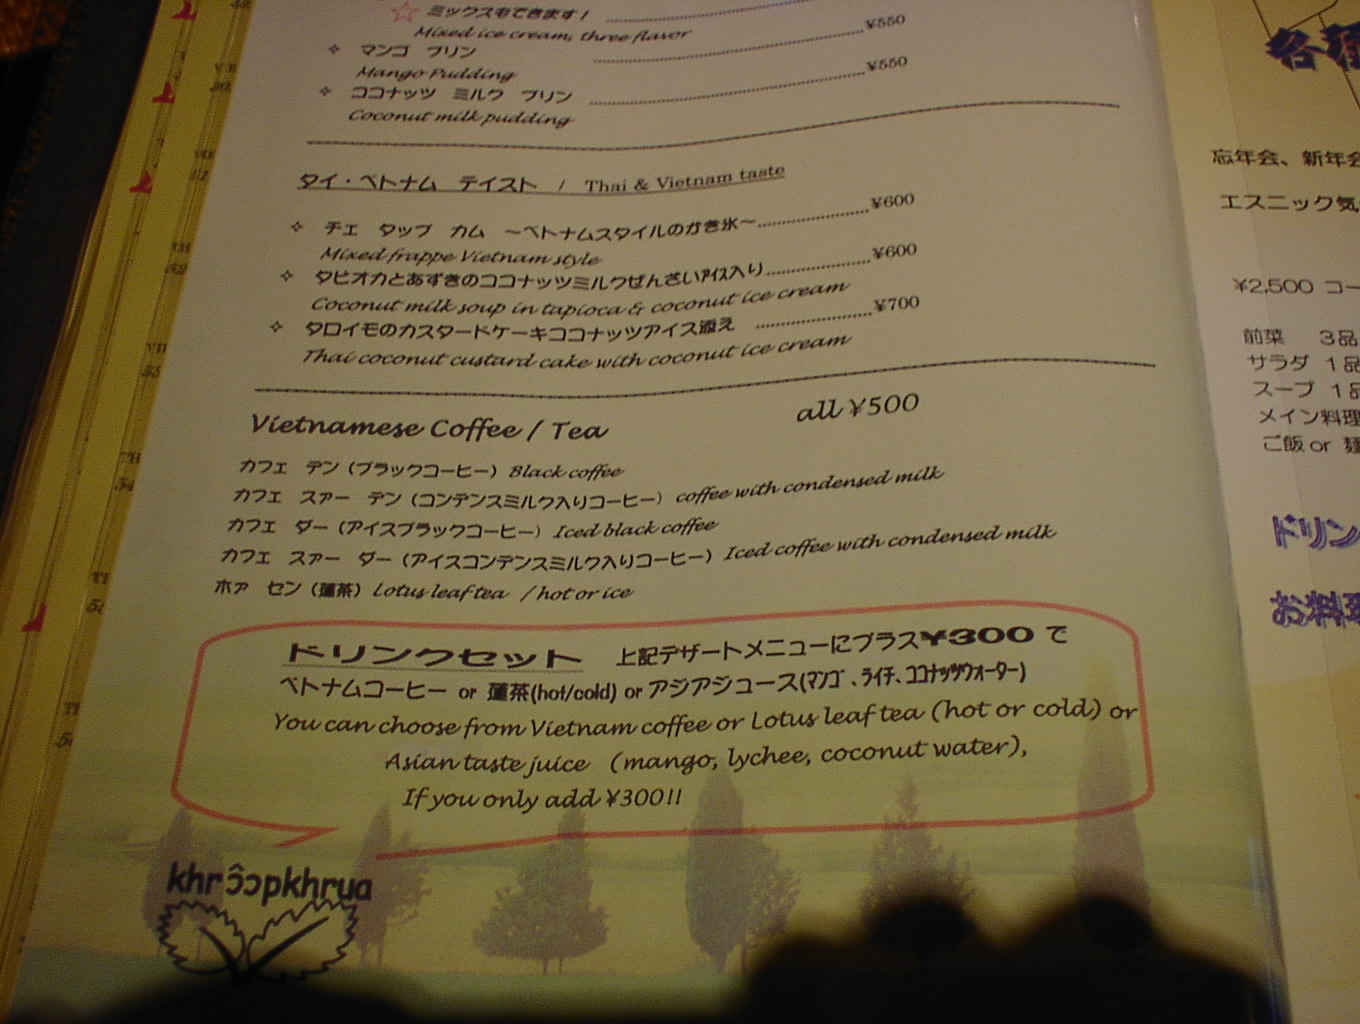 ☆ ミックスもできます！
Mixed ice cream, three flavor
✧ マンゴ プリン ¥550
Mango Pudding
✧ ココナッツ ミルク プリン ¥550
Coconut milk pudding
タイ・ベトナム テイスト / Thai & Vietnam taste
✧ チェ タップ カム ～ベトナムスタイルのかき氷～ ¥600
Mixed frappe Vietnam style
✧ タピオカとあずきのココナッツミルクぜんざいアイス入り ¥600
Coconut milk soup in tapioca & coconut ice cream
✧ タロイモのカスタードケーキココナッツアイス添え ¥700
Thai coconut custard cake with coconut ice cream
Vietnamese Coffee / Tea all ¥500
カフェ デン（ブラックコーヒー）Black coffee
カフェ スァー デン（コンデンスミルク入りコーヒー）coffee with condensed milk
カフェ ダー（アイスブラックコーヒー）Iced black coffee
カフェ スァー ダー（アイスコンデンスミルク入りコーヒー）Iced coffee with condensed milk
ホァ セン（蓮茶）Lotus leaf tea / hot or ice
ドリンクセット 上記デザートメニューにプラス¥300で
ベトナムコーヒー or 蓮茶(hot/cold) or アジアジュース(マンゴ、ライチ、ココナッツウォーター)
You can choose from Vietnam coffee or Lotus leaf tea (hot or cold) or
Asian taste juice (mango, lychee, coconut water),
If you only add ¥300!!
khrôɔpkhrua
忘年会、新年会
エスニック気
¥2,500 コー
前菜 3品
サラダ 1品
スープ 1品
メイン料理
ご飯 or 麺
ドリン
お料理